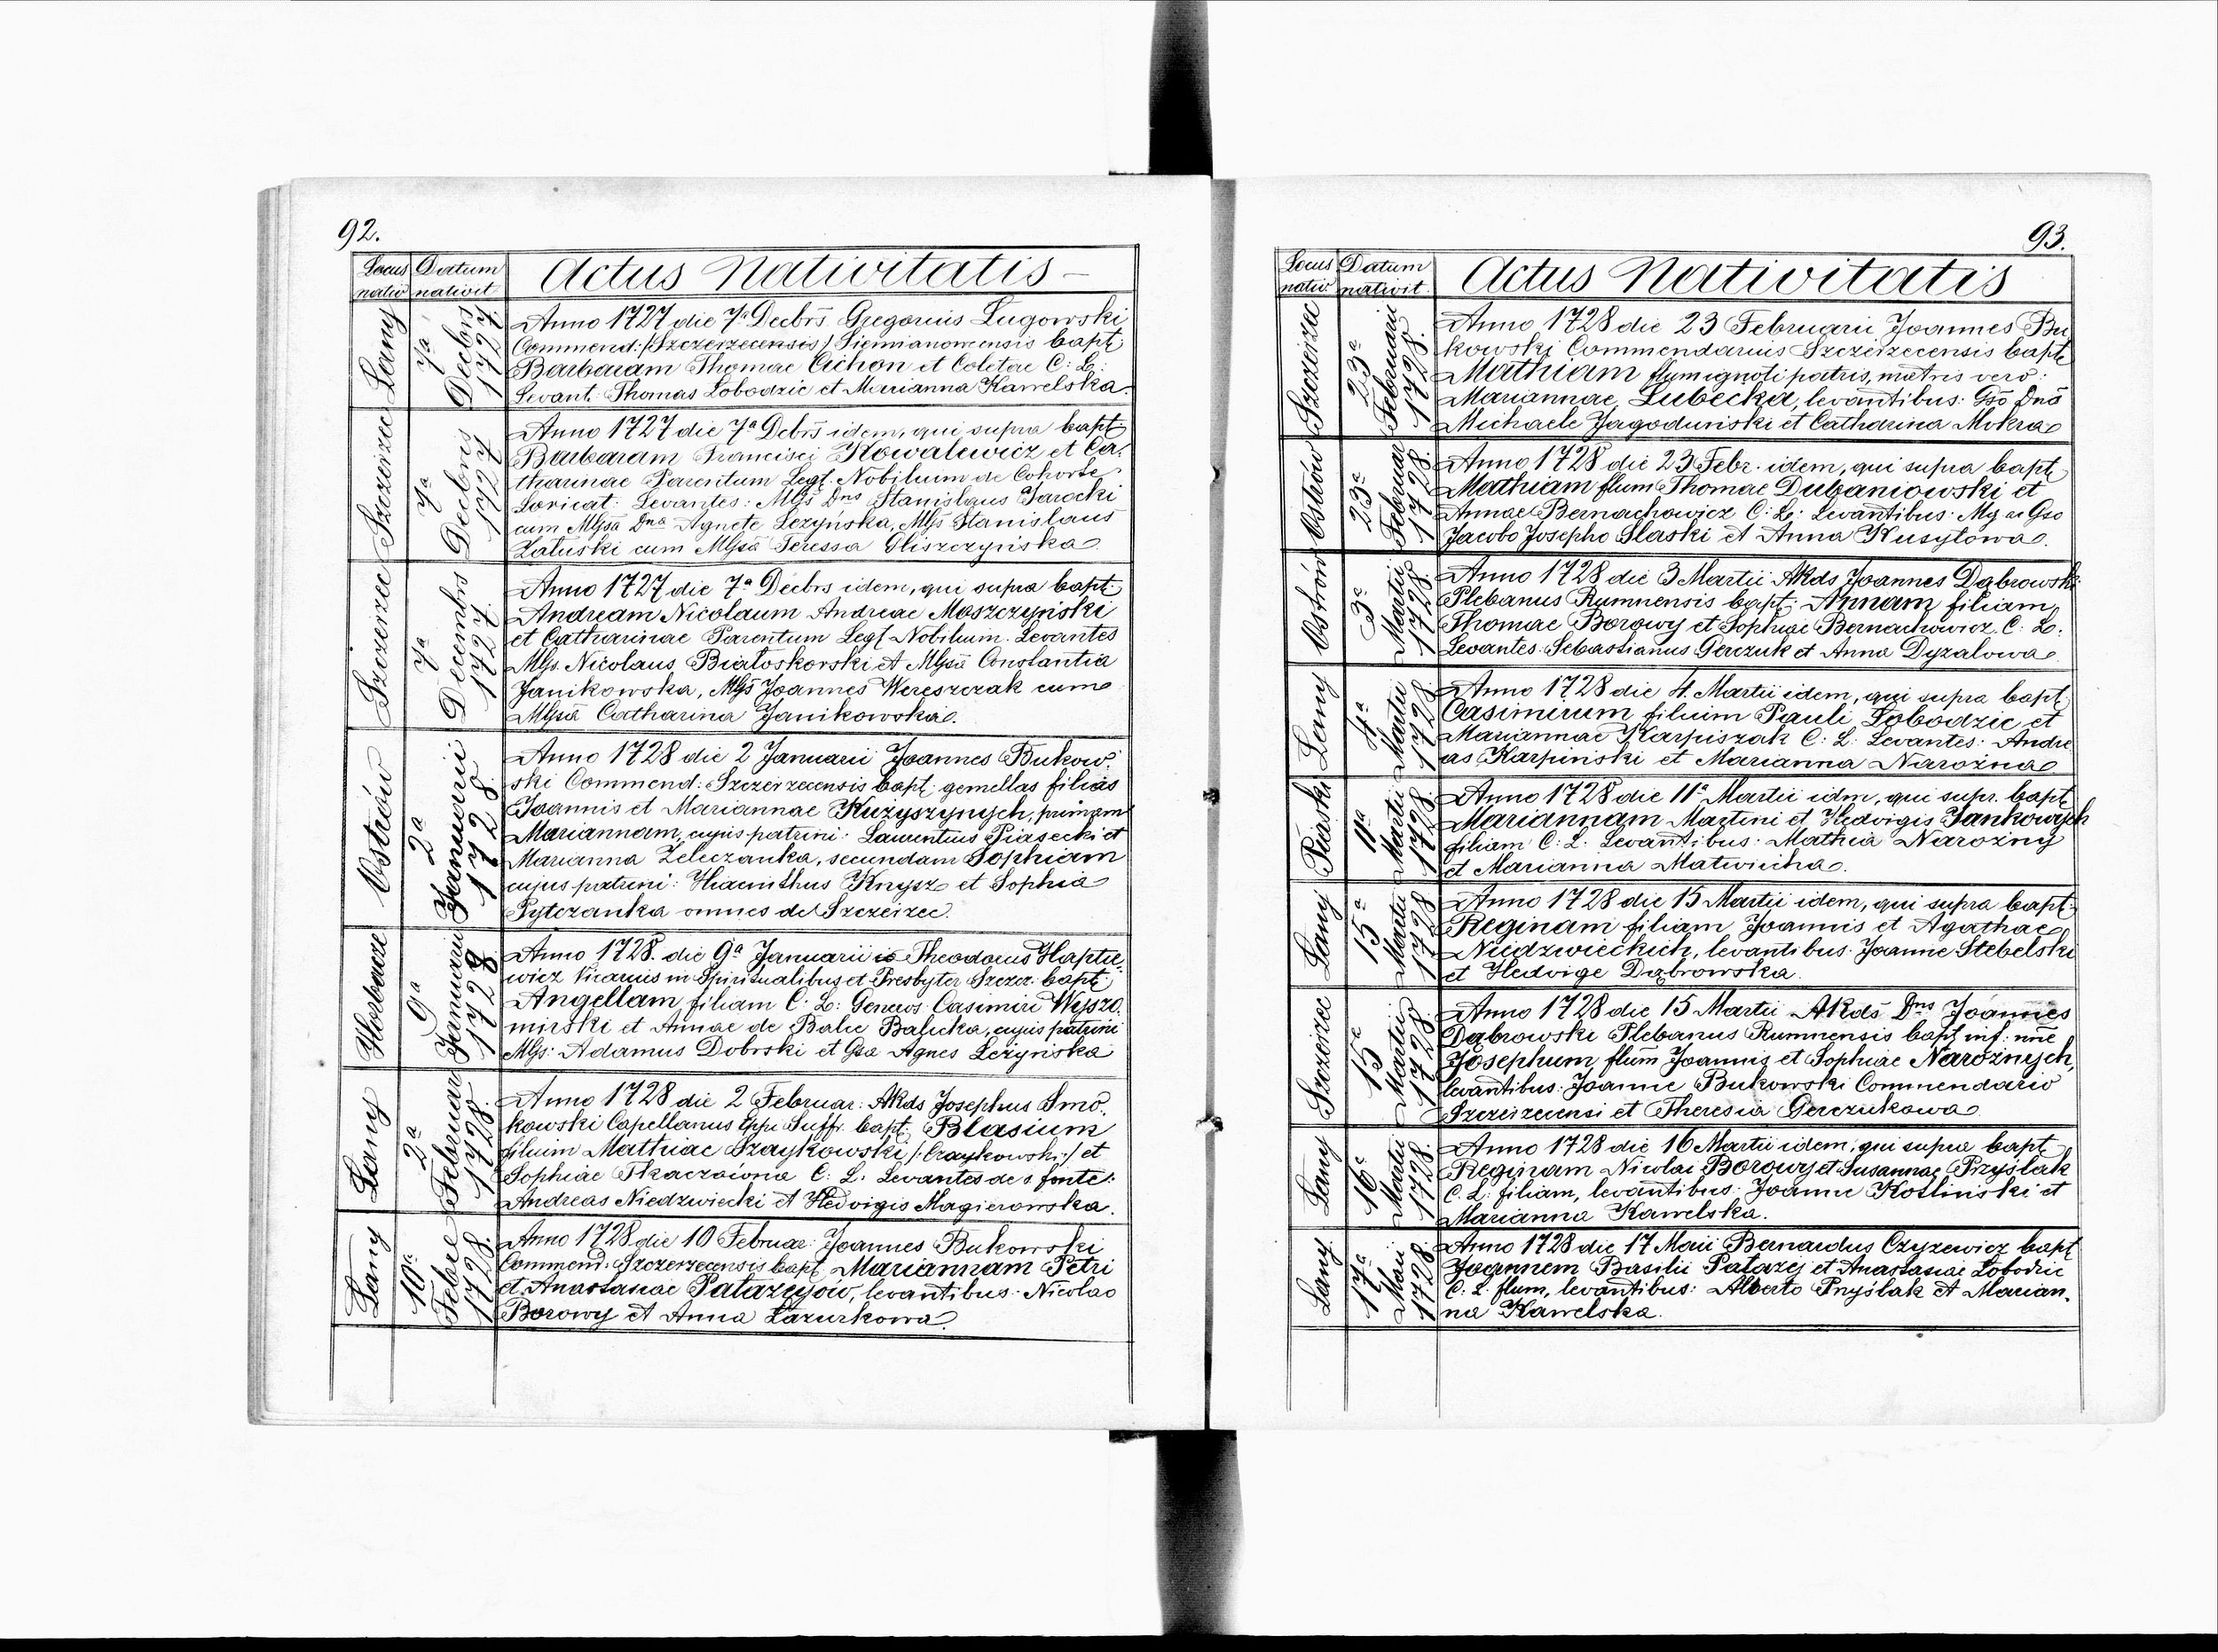 92.
Locus nativ
Datum nativit
Actus Nativitatis
Łany
7a Decbrs 1727.
Anno 1727 die 7a Decbrs Gregorius Ługowski
Commend: /Szczerzecensis/ Siemianowcensis bapt.
Barbaram Thomae Cichon et Coletae C: L:
Levant: Thomas Łobodzic et Marianna Kawelska.
Szczerzec
7a Decbris 1727
Anno 1727 die 7a Debrs idem, qui supra bapt.
Barbaram Francisci Kowalewicz et Ca-
tharinae Parentum Legt. Nobilium de Cohorte
Loricat: Levantes: Mgs Dns Stanislaus Jarocki
cum Mgsa Dna Agnete Leżyńska, Mgs Stanislaus
Załuski cum Mgsa Teressa Gliszczyńska
Szczerzec
7a Decembrs 1727
Anno 1727 die 7a Decbrs idem, qui supra bapt.
Andream Nicolaum Andreae Moszczyński
et Catharinae Parentum Legt Nobilium. Levantes
Mgs. Nicolaus Białoskorski et Mgsa Constantia
Janikowska, Mgs Joannes Wereszczak cum
Mgsa Catharina Janikowska.
Ostrów
2a Januarii 1728.
Anno 1728 die 2 Januarii Joannes Bukow-
ski Commend: Szczerzecensis bapt: gemellas filias
Joannis et Mariannae Kużyszynych, primam
Mariannam, cujus patrini: Laurentius Piasecki et
Marianna Zeleczanka, secundam Sophiam
cujus patrini: Hiacinthus Knysz et Sophia
Pytczanka omnes de Szczerzec.
Horbacze
9a Januarii 1728
Anno 1728. die 9a Januarii Theodorus Haptie-
wicz Vicarius in Spiritualibus et Presbyter Szczer. bapt.
Angellam filiam C: L: Generos: Casimiri Wyszo-
mirski et Annae de Balic Balicka, cujus patrini
Mgs: Adamus Dobrski et Gsa Agnes Leżyńska
Łany
2a Februar 1728.
Anno 1728 die 2 Februar: ARds Josephus Smo-
kowski Capellanus Eppi Suff. bapt. Blasium
filium Matthiae Szaykowski /:Czaykowski:/ et
Sophiae Tkaczowna C: L: Levantes de s fonte:
Andreas Niedzwiecki et Hedvigis Magierowska.
Łany
10a Febr 1728.
Anno 1728 die 10 Februar: Joannes Bukowski
Commend: Szczerzecensis bapt. Mariannam Petri
et Anastasiae Patażejów, levantibus: Nicolao
Borowy et Anna Łazurkowa.
93.
Locus nativ
Datum nativit.
Actus Nativitatis
Szczerzec
23a Februarii 1728.
Anno 1728 die 23 Februarii Joannes Bu
kowski Commendarius Szczerzecensis bapt.
Mathiam flum ignoti patris, matris vero:
Mariannae Lubecka, levantibus: Gso Dno
Michaele Jagoduński et Catharina Mokra
Ostrów
23a Februar 1728.
Anno 1728 die 23 Febr. idem, qui supra bapt.
Mathiam flum Thomae Dubaniowski et
Annae Bernachowicz C: L: Levantibus: Mg ac Gso
Jacobo Josepho Slaski et Anna Kusytowa.
Ostrów
3a Martii 1728
Anno 1728 die 3 Martii ARds Joannes Dąbrowski
Plebanus Rumnensis bapt: Annam filiam
Thomae Borowy et Sophiae Bernachowicz C: L:
Levantes: Sebastianus Gerczuk et Anna Dyzalowa
Łany
4a Martii 1728.
Anno 1728 die 4. Martii idem, qui supra bapt.
Casimirum filium Pauli Łobodzic et
Mariannae Karpiszak C: L: Levantes: Andre
as Karpiński et Marianna Narożna
Piaski
11a Martii 1728.
Anno 1728 die 11a Martii idm, qui supr. bapt.
Mariannam Martini et Hedvigis Jankowych
filiam C: L: Levantibus: Mathia Narożny
et Marianna Matwiicha.
Łany
15a Martii 1728
Anno 1728 die 15 Martii idem, qui supra bapt.
Reginam filiam Joannis et Agathae
Niedzwieckich, levantibus: Joanne Stebelski
et Hedvige Dąbrowska.
Szczerzec
15a Martii 1728.
Anno 1728 die 15 Martii ARds Dns Joannes
Dąbrowski Plebanus Rumnensis bapt. inf: nne
Josephum, flum Joannis et Sophiae Narożnych,
levantibus: Joanne Bukowski Commendario
Szczerzecensi et Theresia Gerczukowa
Łany
16a Martii 1728.
Anno 1728 die 16 Martii idem, qui supra bapt.
Reginam Nicolai Borowy et Susannae Przyślak
C. L: filiam, levantibus: Joanne Kośliński et
Marianna Kawelska.
Łany
17a Maii 1728.
Anno 1728 die 17 Maii Bernardus Czyżewicz bapt.
Joannem Basilii Patażej et Anastasiae Łobodzic
C: L: flum, levantibus: Alberto Pryślak et Marian-
na Kawelska.